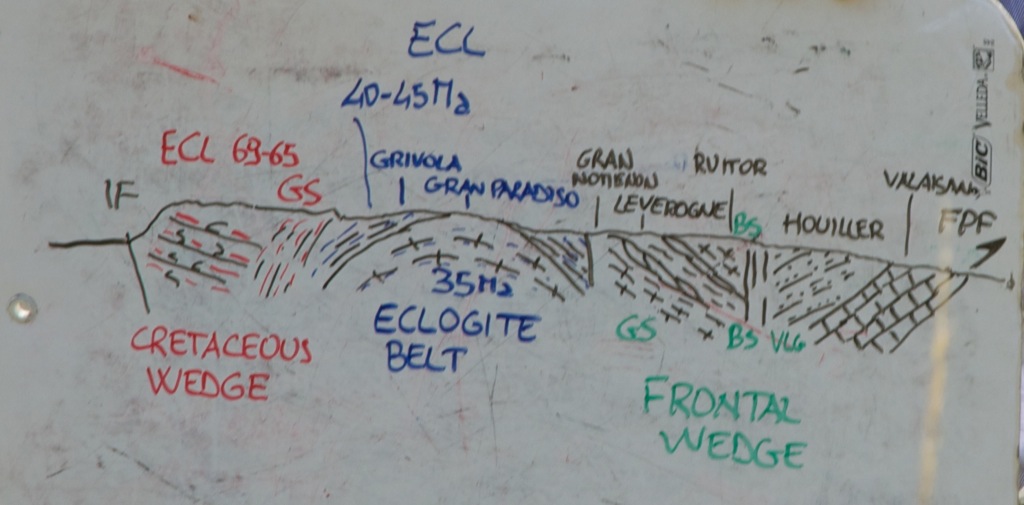 ECL
40-45Ma
ECL 69-65
GS
IF
GRIVOLA
GRAN PARADISO
GRAN
NOMENON
LEVEROGNE
RUITOR
BS
HOUILLER
VALAISAN
FPF
BIC VELLEDA
35Ma
ECLOGITE
BELT
CRETACEOUS
WEDGE
GS
BS
VLG
FRONTAL
WEDGE